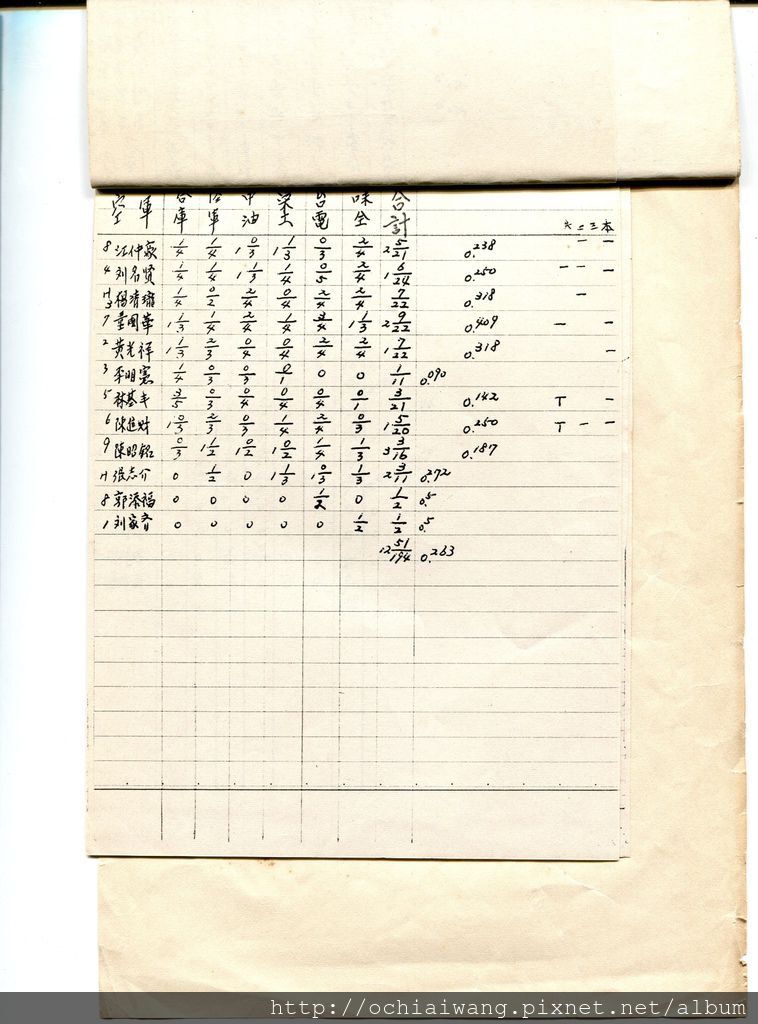 空軍 合庫 陸軍 中油 味全 台電 合計 六 二 三 本
8 江仲豪 1/4 1/4 1 0/3 1 1/3 0/3 2/4 2 5/21 0.238 一 一
4 刘名贤 1/4 1/4 1 1/3 1/4 0/5 2/4 1 6/24 0.250 一 一 一
1/4 0/2 2/4 0/4 2/4 2/4 7/22 0.318 一
7 童國華 1 1/3 1/4 2/4 1/4 3/4 1 1/3 2 9/22 0.409 一 一
2 黄光祥 1 1/3 2/3 0/4 0/4 2/4 2/4 1 7/22 0.318 一
3 李明憲 1/4 0/3 0/3 0/1 0 0 1/11 0.090
5 林基丰 3/5 0/3 0/4 0/4 0/4 0/1 3/21 0.142 T 一
6 陳進財 1 0/3 2/3 0/3 1/4 2/4 0/3 1 5/20 0.250 T 一 一
9 陳昭銘 0/3 1 1/2 1 0/2 1 0/2 1/4 1 1/3 3 3/16 0.187
張志介 0 1/2 0 1 1/3 1 0/3 1/3 2 3/11 0.272
8 郭添福 0 0 0 0 1/2 0 1/2 0.5
1 刘家齐 0 0 0 0 0 1/2 1/2 0.5
12 51/194 0.263
http://ochiaiwang.pixnet.net/album